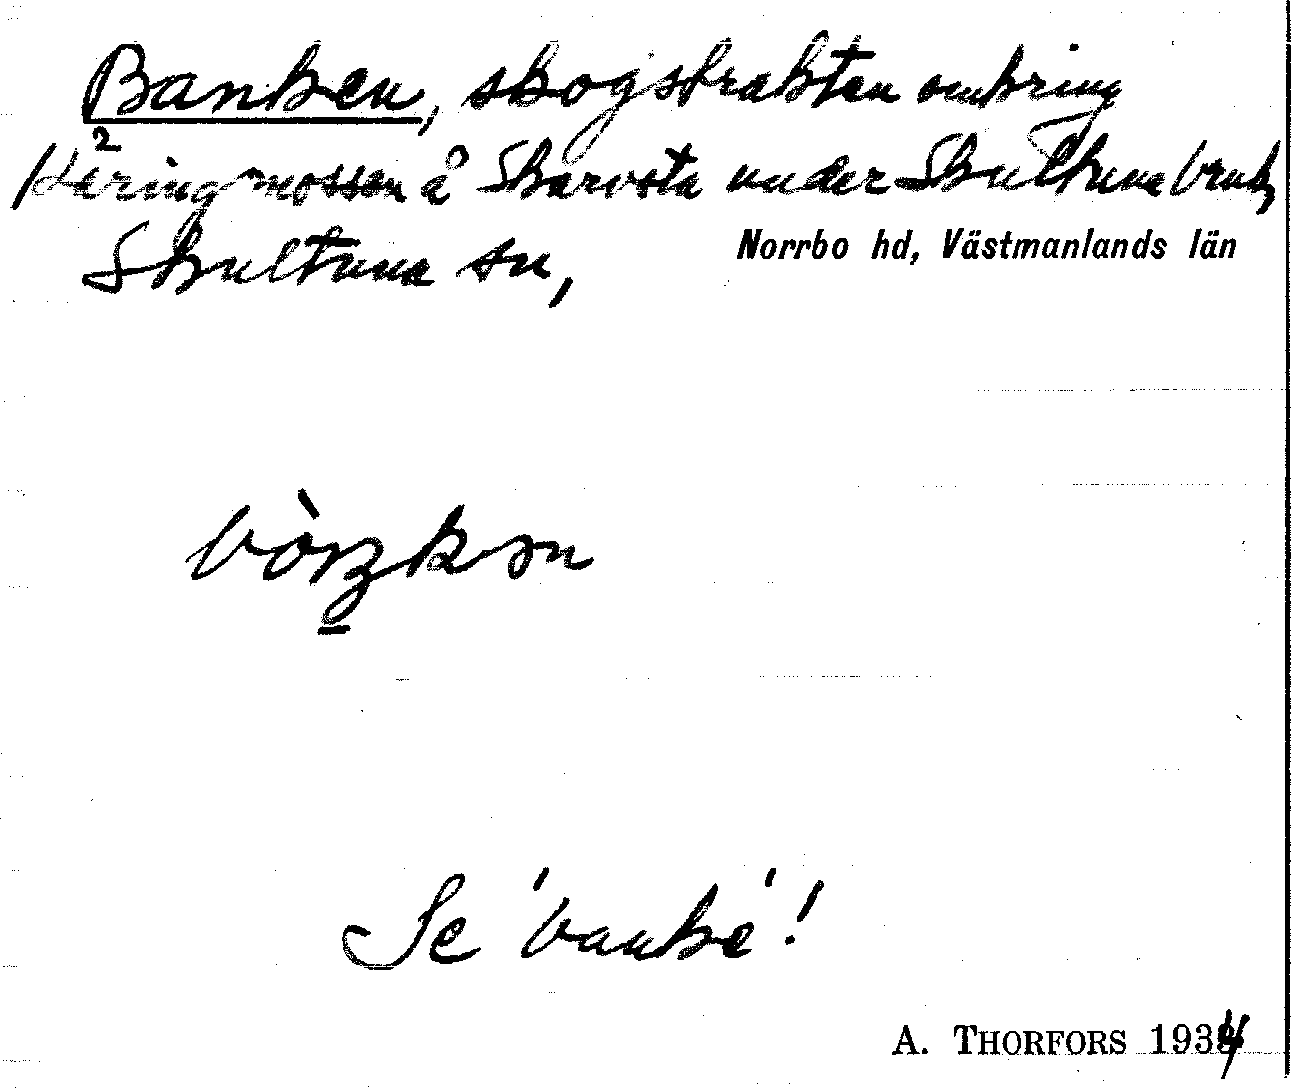 Banken, skogstrakten omkring
Häringmossen å Skarvsta under Skultuna bruk,
Skultuna sn,
Norrbo hd, Västmanlands län
bòŋkɘn
Se 'banke'!
A. THORFORS 1934